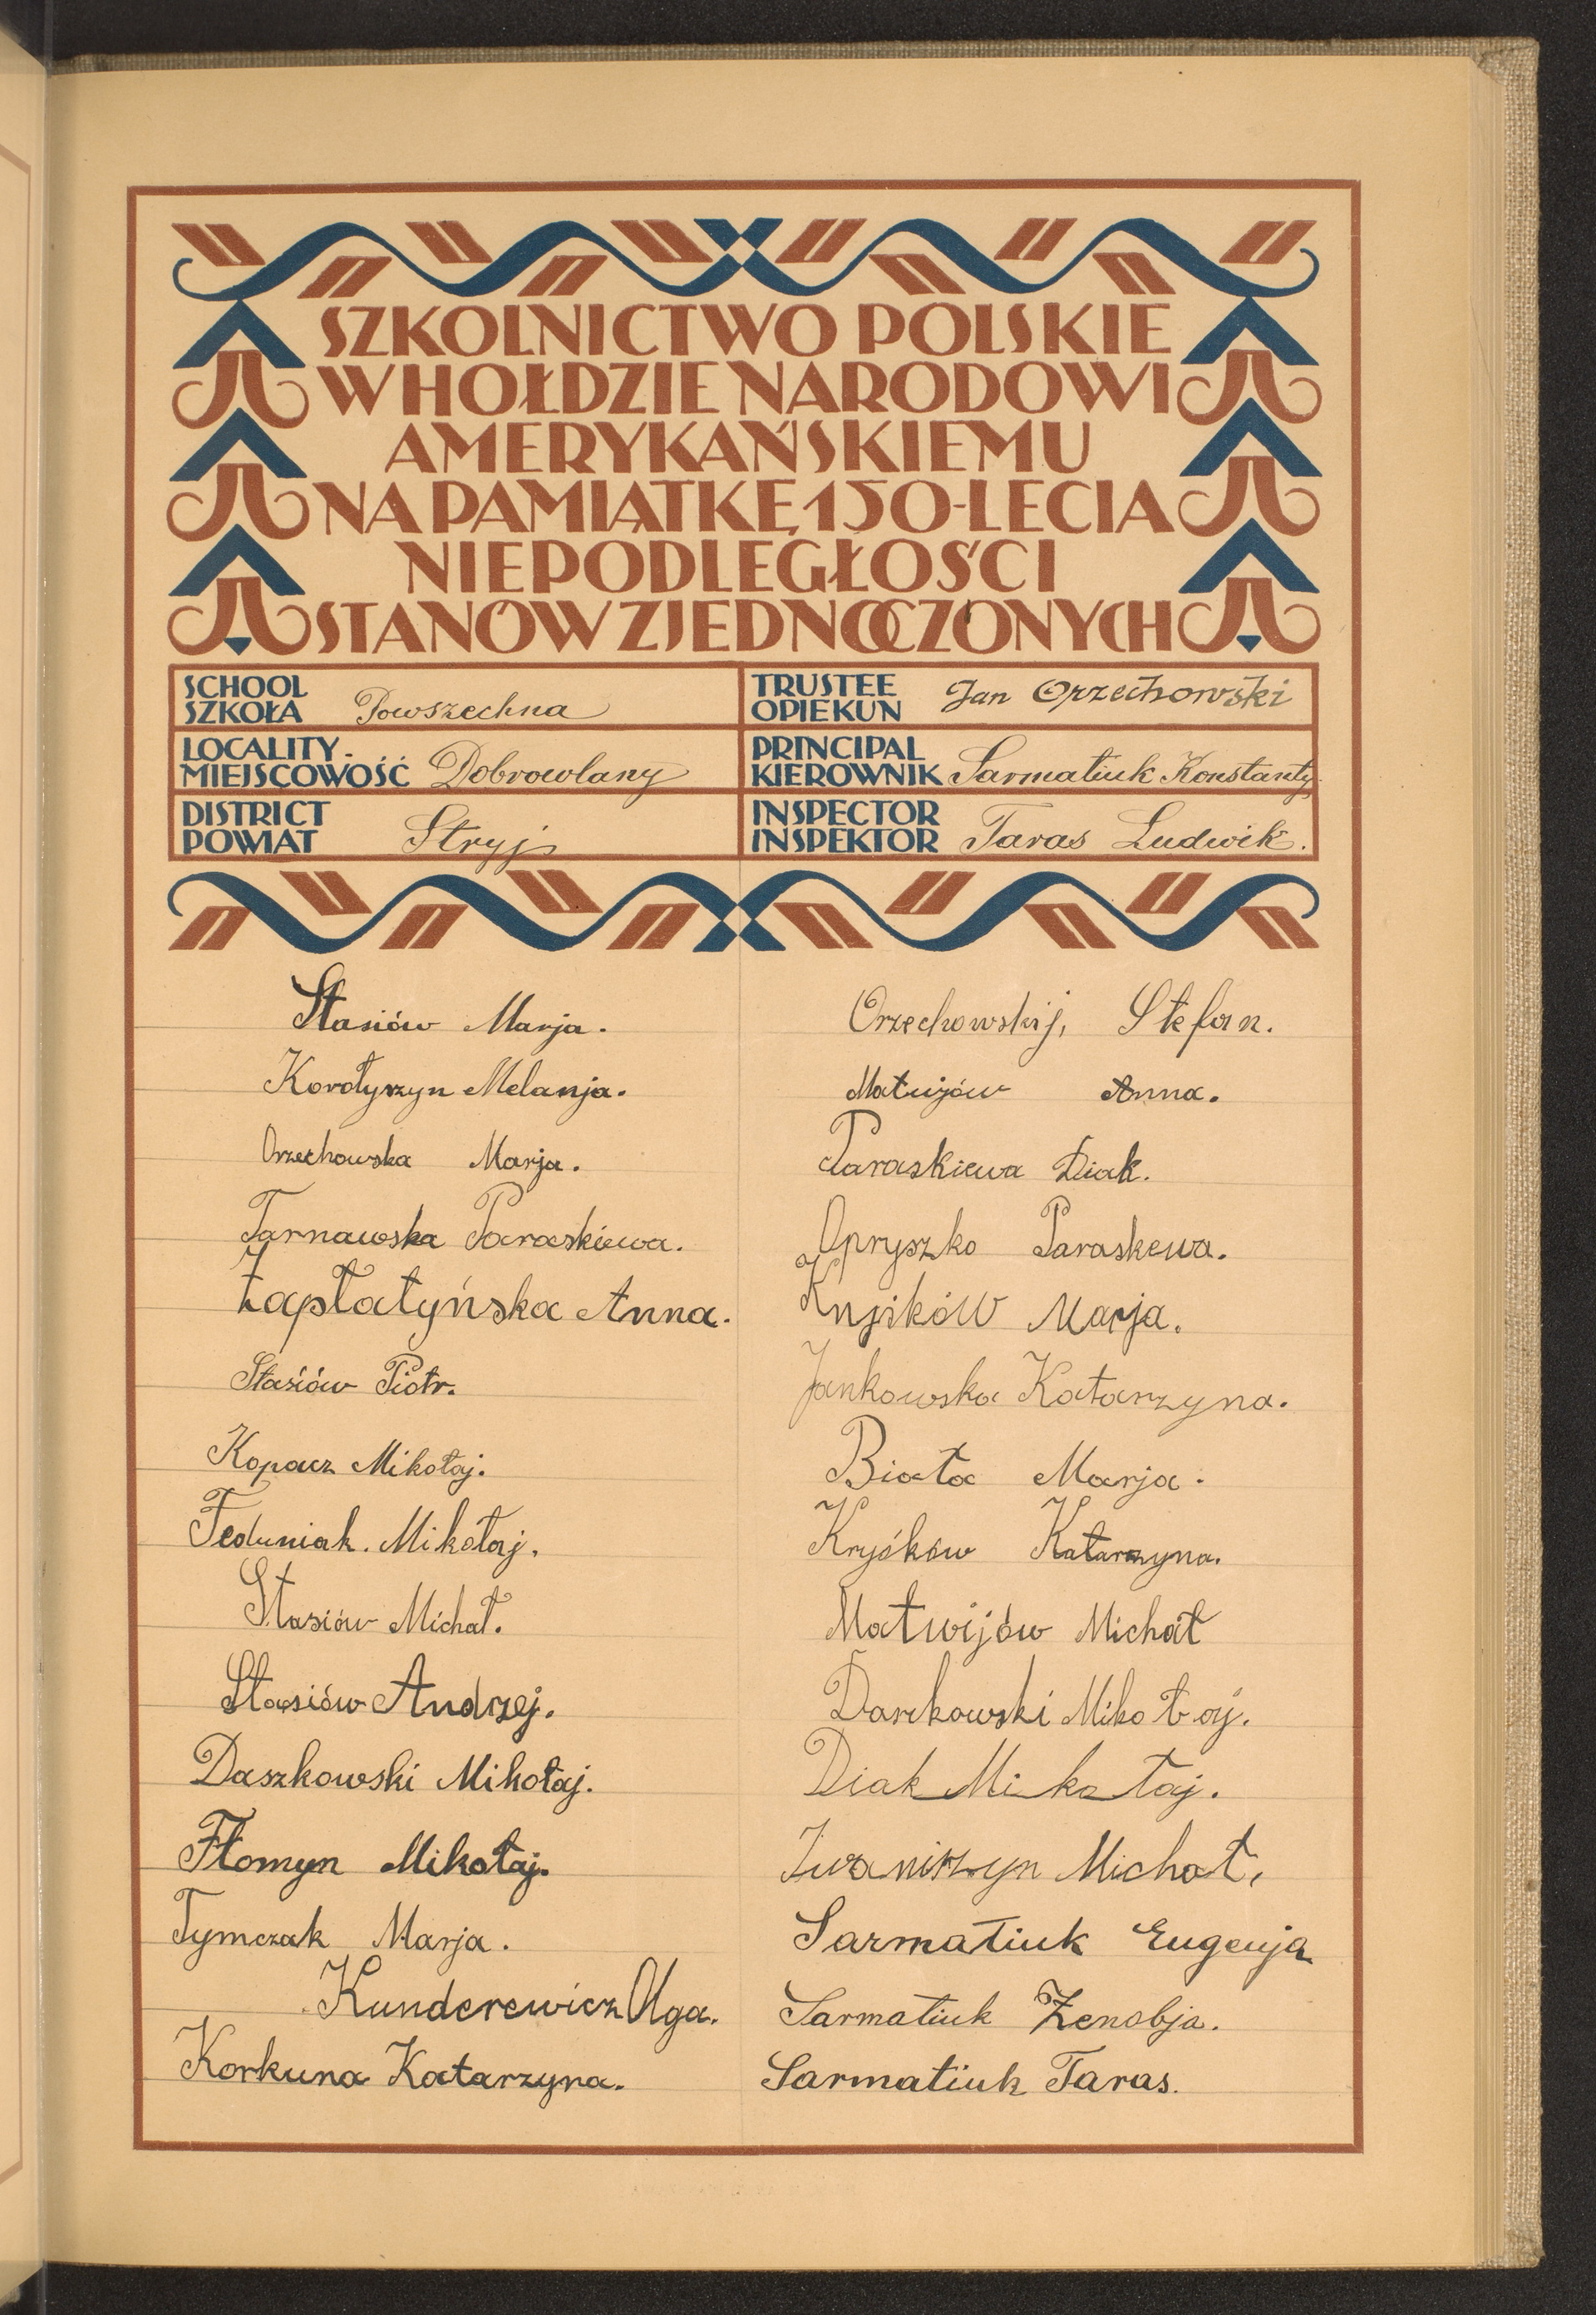 SZKOLNICTWO POLSKIE
W HOŁDZIE NARODOWI
AMERYKAŃSKIEMU
NA PAMIĄTKĘ 150-LECIA
NIEPODLEGŁOŚCI
STANÓW ZJEDNOCZONYCH
SCHOOL
SZKOŁA Powszechna
TRUSTEE
OPIEKUN Jan Orzechowski
LOCALITY-
MIEJSCOWOŚĆ Dobrowlany
PRINCIPAL
KIEROWNIK Sarmatiuk Konstanty
DISTRICT
POWIAT Stryj
INSPECTOR
INSPEKTOR Taras Ludwik.
Stasiów Marja.
Korotyszyn Melanja.
Orzechowska Marja.
Tarnawska Paraskiewa.
Zapłatyńska Anna.
Stasiów Piotr.
Kopacz Mikołaj.
Feduniak. Mikołaj.
Stasiów Michał.
Stasiów Andrzej.
Daszkowski Mikołaj.
Fłomyn Mikołaj.
Tymczak Marja.
Kunderewicz Olga.
Korkuna Katarzyna.
Orzechowskij, Stefan.
Matwijów Anna.
Paraskiewa Diak.
Opryszko Paraskewa.
Marja.
Jankowska Katarzyna.
Biała Marja.
Katarzyna.
Matwijów Michał
Mikołaj.
Diak Mikołaj.
Iwaniszyn Michał,
Sarmatiuk Eugenja
Sarmatiuk Zenobja.
Sarmatiuk Taras.